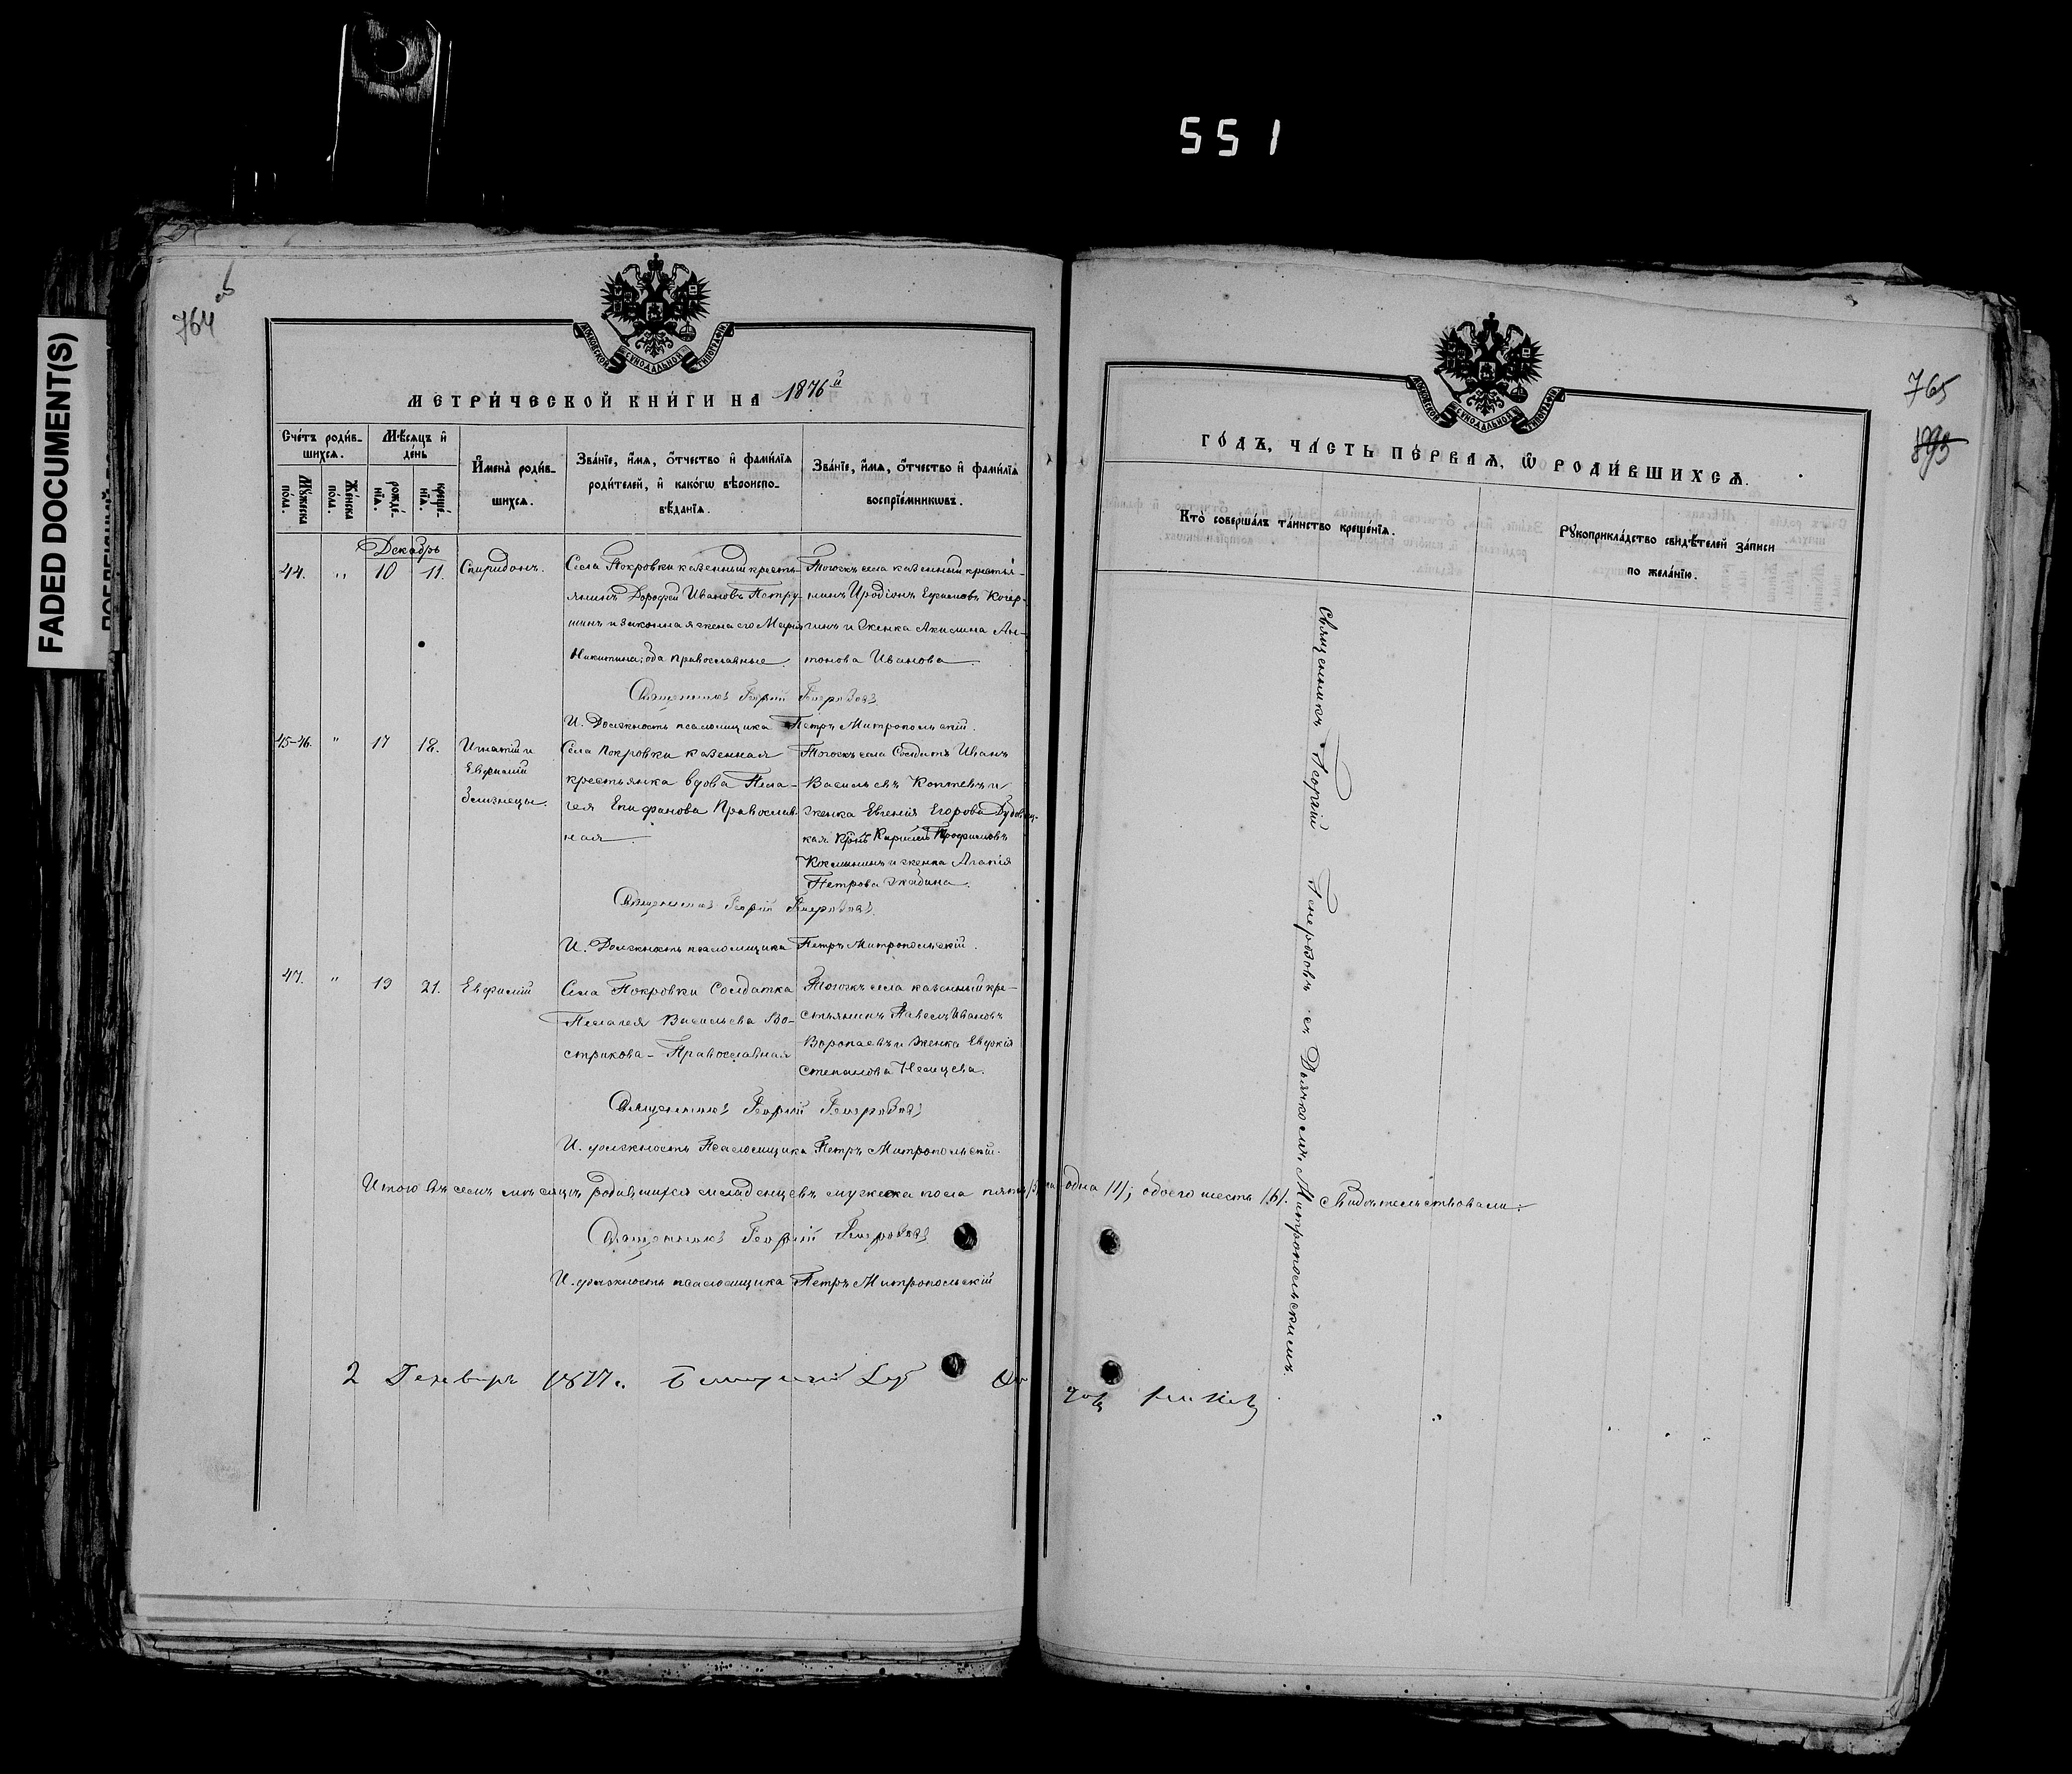 551
FADED DOCUMENT(S)
764 об
МОСКОВСКОЙ СУНОДАЛЬНОЙ ТИПОГРАФІИ
МЕТРИ́ЧЕСКОЙ КНИ́ГИ НА 1876й
Сче́тъ роди́в-
шихсѧ.
Мѣ́сѧцъ и҆
де́нь
Мꙋ́жеска
по́ла.
Же́нска
по́ла.
рожде́-
нїѧ.
креще́-
нїѧ.
И҆мена̀ роди́в-
шихсѧ.
Зва́нїе, и҆́мѧ, о҆́тчество и҆ фами́лїѧ
роди́телей, и҆ како́гѡ вѣроиспо-
вѣ́данїѧ.
Зва́нїе, и҆́мѧ, о҆́тчество и҆ фами́лїѧ
воспрїе́мникѡвъ.
Декабрь
44. " 10 11. Спиридонъ.
Села Покровки казенный кресть-
янинъ Дорофей Ивановъ Петру-
шинъ и законная жена его Марія
Никитина; оба православные.
Тогожъ села казенный крестья-
нинъ Иродіонъ Ефимовъ Кочер-
гинъ и женка Акилина Ан-
тонова Иванова
Священникъ Георгій Генерозовъ
И. Должность псаломщика Петръ Митропольскій.
45-46. " 17 18. Игнатій и
Евфимій
близнецы.
Села Покровки казенная
крестьянка вдова Пела-
гея Епифанова Православ-
ная
Тогожъ села Солдатъ Иванъ
Васильевъ Коптевъ и
женка Евгенія Егорова
Петрова
Священникъ Георгій Генерозовъ
И. Должность псаломщика Петръ Митропольскій.
47. " 19 21. Евфимій
Села Покровки Солдатка
Пелагея Васильева Во-
стрикова - Православная
Тогожъ села казенный кре-
стьянинъ Павелъ Ивановъ
Воропаевъ и женка Евдокія
Степанова Немцева.
Священникъ Георгій Генерозовъ
И. должность Псаломщика Петръ Митропольскій.
Итого въ семъ мѣсяцѣ родившихся младенцевъ мужеска пола пять одна /1/; обоего шесть /6/. Свидѣтельствовали:
Священникъ Георгій Генерозовъ
И. должность псаломщика Петръ Митропольскій
2 Генваря 1877 г.
765
895
МОСКОВСКОЙ СУНОДАЛЬНОЙ ТИПОГРАФІИ
ГО́ДЪ, ЧА́СТЬ ПЕ́РВАѦ, Ѡ҆ РОДИ́ВШИХСѦ.
Кто̀ соверша́лъ та́инство креще́нїѧ.
Рꙋкоприкла́дство свидѣ́телей за́писи
по жела́нїю.
Священникъ Георгій Генерозовъ съ Дьячкомъ Митропольскимъ.